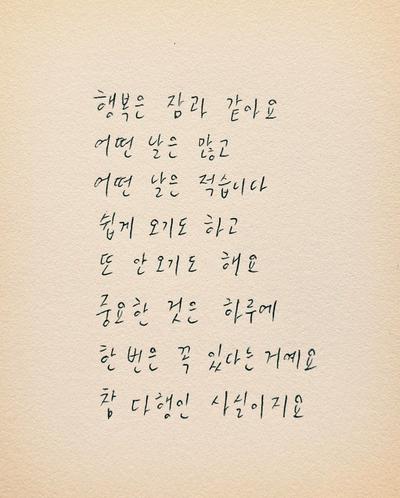 행복은 잠과 같아요
어떤 날은 많고
어떤 날은 적습니다
쉽게 오기도 하고
또 안 오기도 해요
중요한 것은 하루에
한 번은 꼭 있다는 거예요
참 다행인 사실이지요